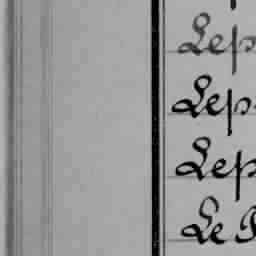 Lep
Lep
Lep
Le P